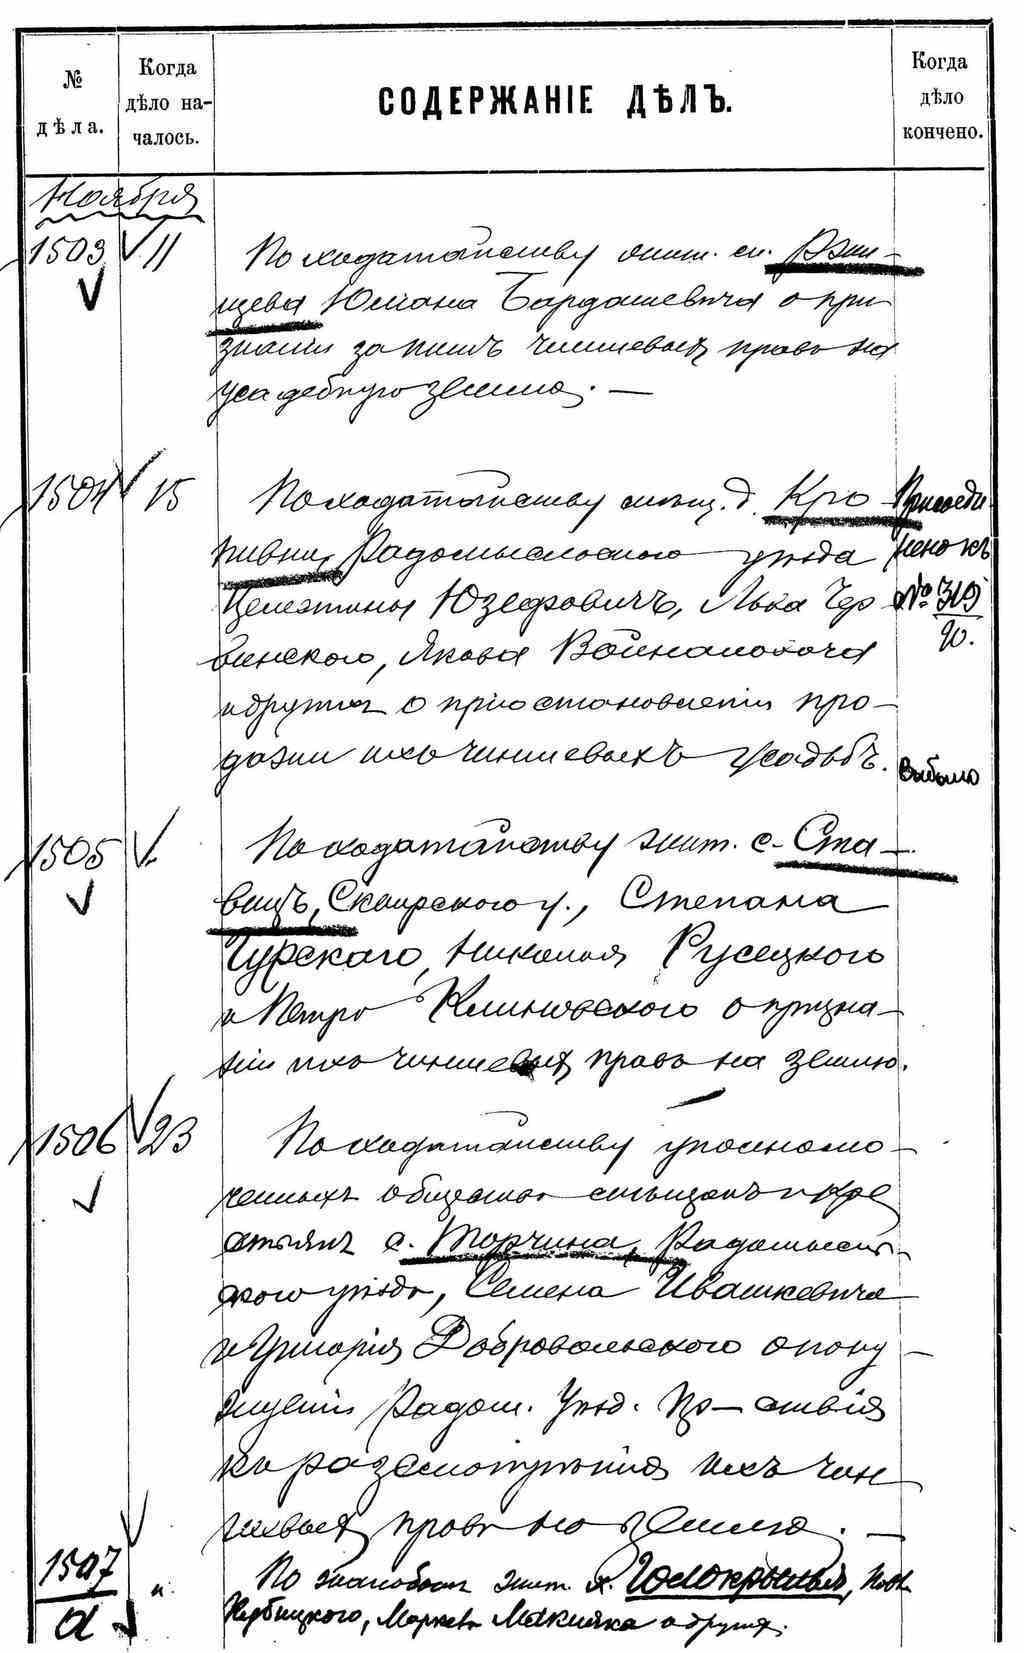 № дѣла.
Когда дѣло началось.
СОДЕРЖАНІЕ ДѢЛЪ.
Когда дѣло кончено.
Ноября
1503 11 По ходатайству жит. с. Ржи-
щева Юліана Бардашевича о при
знаніи за нимъ чиншевыхъ правъ на
усадебную землю. —
1504 15 По ходатайству мѣщ. д. Кро-
пивни, Радомысльскаго уѣзда
Целестина Юзефовичъ, Лька Чер
винскаго, Якова
и другихъ о пріостановленіи про-
дажи ихъ чиншевыхъ усадьбъ.
Присоеди
нено къ
№ 319
90.
Выбыло
1505 По ходатайству жит. с. Ста-
вищъ, Сквирского у., Степана
Гурскаго, Николая Русецкого
и ПетраКлиновского о призна-
ніи ихъ чиншевыхъ правъ на землю.
1506 23 По ходатайству уполномо-
ченныхъ обществъ мѣщанъ и кре
стьянъ с. Торчина, Радомысль-
скаго уѣзда, Семена Ивашкевича
и Григорія Добровольского о пону-
жденіи Радом. Уѣзд. Пр-ствія
къ разсмотрѣнію ихъ чин
шевыхъ правъ на землю. —
1507 По жалобамъ жит. Голокрылья,
Марка и другихъ.
а